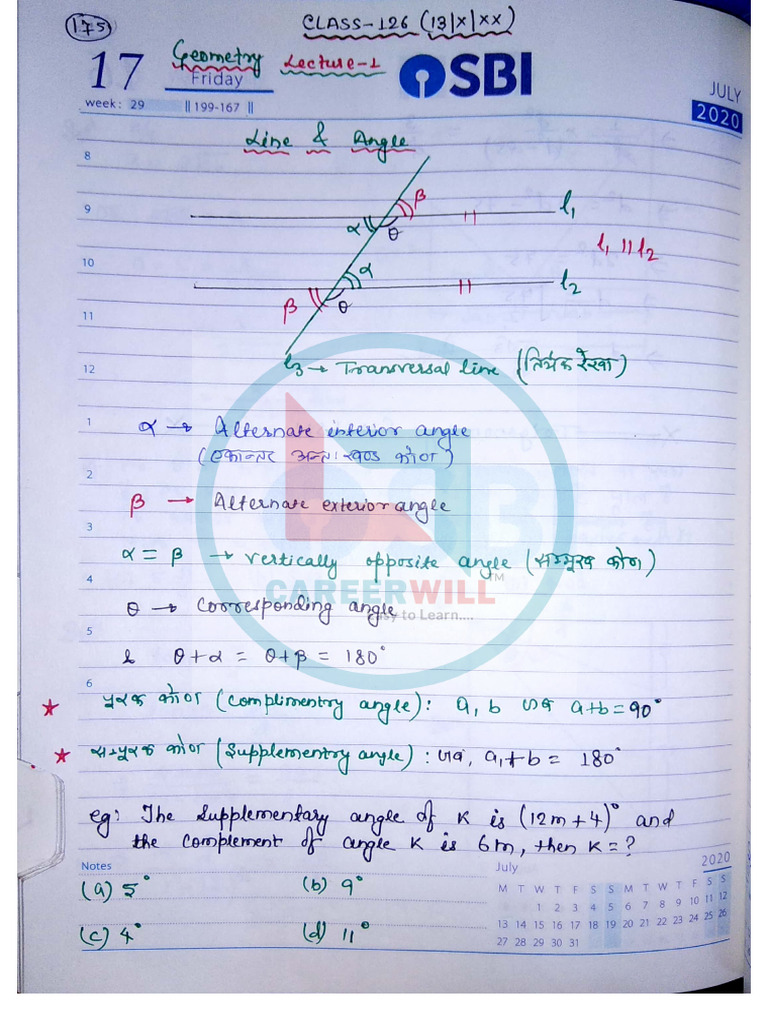 175
CLASS-126 (13|X|XX)
17
Friday
Geometry Lecture-1
SBI
JULY
2020
week: 29 || 199-167 ||
Line & Angle
8
9
10
11
12
1
2
3
4
5
6
β
l1
α
θ
l1 || l2
α
l2
β
θ
l3 → Transversal line (तिर्यक रेखा)
α → Alternate interior angle
(एकान्तर अन्तः खण्ड कोण)
β → Alternate exterior angle
α = β → vertically opposite angle (सम्मुख कोण)
CAREERWILL™
θ → Corresponding angle
Easy to Learn....
& θ+α = θ+β = 180°
★ पूरक कोण (Complimentry angle): a, b जब a+b = 90°
★ सम्पूरक कोण (Supplementry angle) : जब, a+b = 180°
eg: The Supplementary angle of K is (12m+4)° and
the complement of angle K is 6m, then K=?
Notes
(a) 5° (b) 9°
(c) 4° (d) 11°
July 2020
M T W T F S S M T W T F S S
1 2 3 4 5 6 7 8 9 10 11 12
13 14 15 16 17 18 19 20 21 22 23 24 25 26
27 28 29 30 31